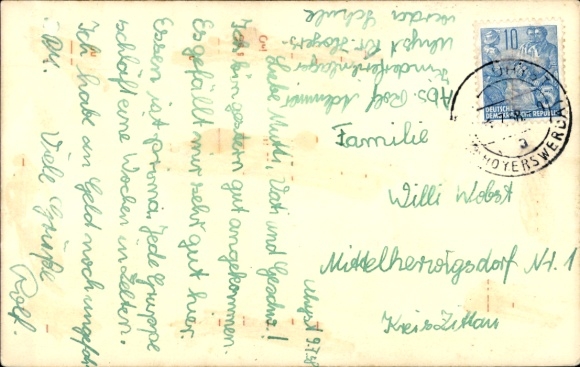 Uhyst 9.7.58
Liebe Mutti, Vati und Geschw.!
Ich bin gestern gut angekommen.
Es gefällt mir sehr gut hier.
Essen ist prima. Jede Gruppe
schläft eine Wochen in Zelten.
Ich habe an Geld noch ungefähr
DM. Viele Grüße
Rolf.
Abs. Rolf
Kinderferienlager
Uhyst Kr. Hoyers-
werda Schule
Familie
Willi Wobst
Mittelherwigsdorf Nr. 1
Kreis Zittau
10
DEUTSCHE
DEMOKRATISCHE REPUBLIK
UHYST
HOYERSWERDA